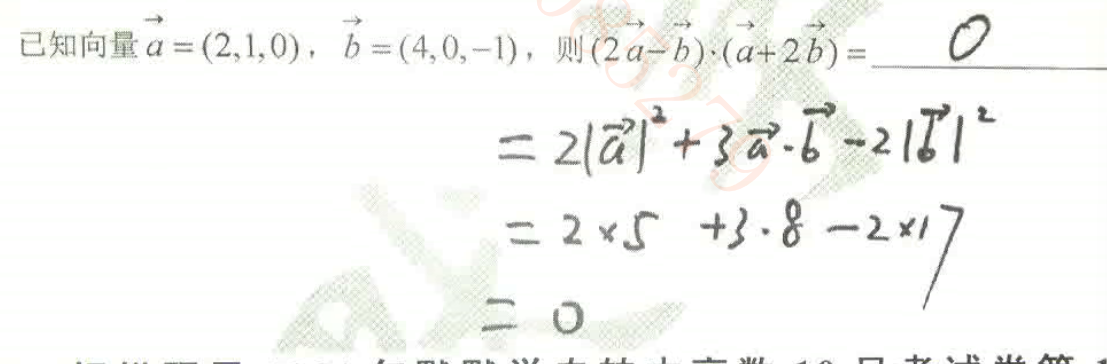 已知向量 \vec{a} = (2,1,0), \vec{b} = (4,0,-1), 则(2\vec{a}-\vec{b})·(\vec{a}+2\vec{b}) = 0
= 2|\vec{a}|² + 3\vec{a}·\vec{b} - 2|\vec{b}|²
= 2×5 +3·8 -2×17
= 0